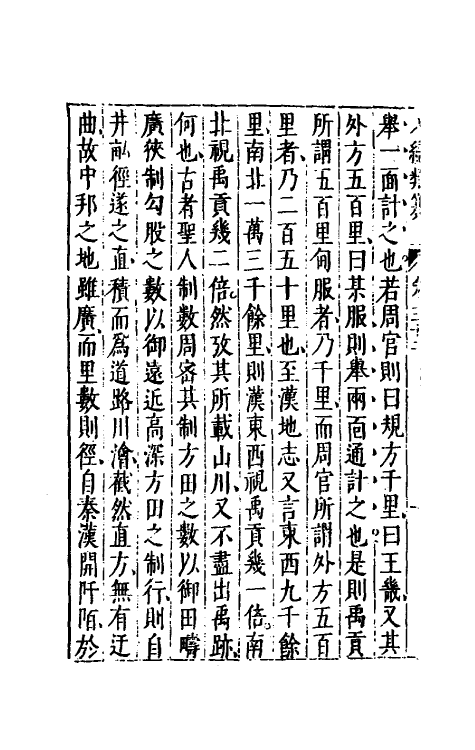 舉一面計之也若周官則曰規方千里曰王畿又其
外方五百里曰某服則舉兩面通計之也是則禹貢
所謂五百里甸服者乃千里而周官所謂外方五百
里者乃二百五十里也至漢地志又言東西九千餘
里南北一萬三千餘里則漢東西視禹貢幾一倍南
北視禹貢幾二倍然攷其所載山川又不盡出禹跡
何也古者聖人制數周密其制方田之數以御田疇
廣狹制勾股之數以御遠近高深方田之制行則自
井畝徑遂之直積而爲道路川澮截然直方無有迂
曲故中邦之地雖廣而里數則徑自秦漢開阡陌於